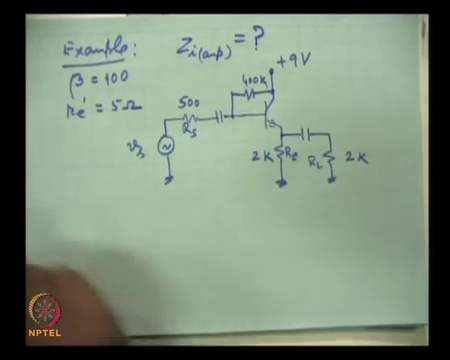 Example:
Zi(amp) = ?
β = 100
Re' = 5Ω
+9V
400K
500
Rs
vs
2K RE
RL 2K
NPTEL